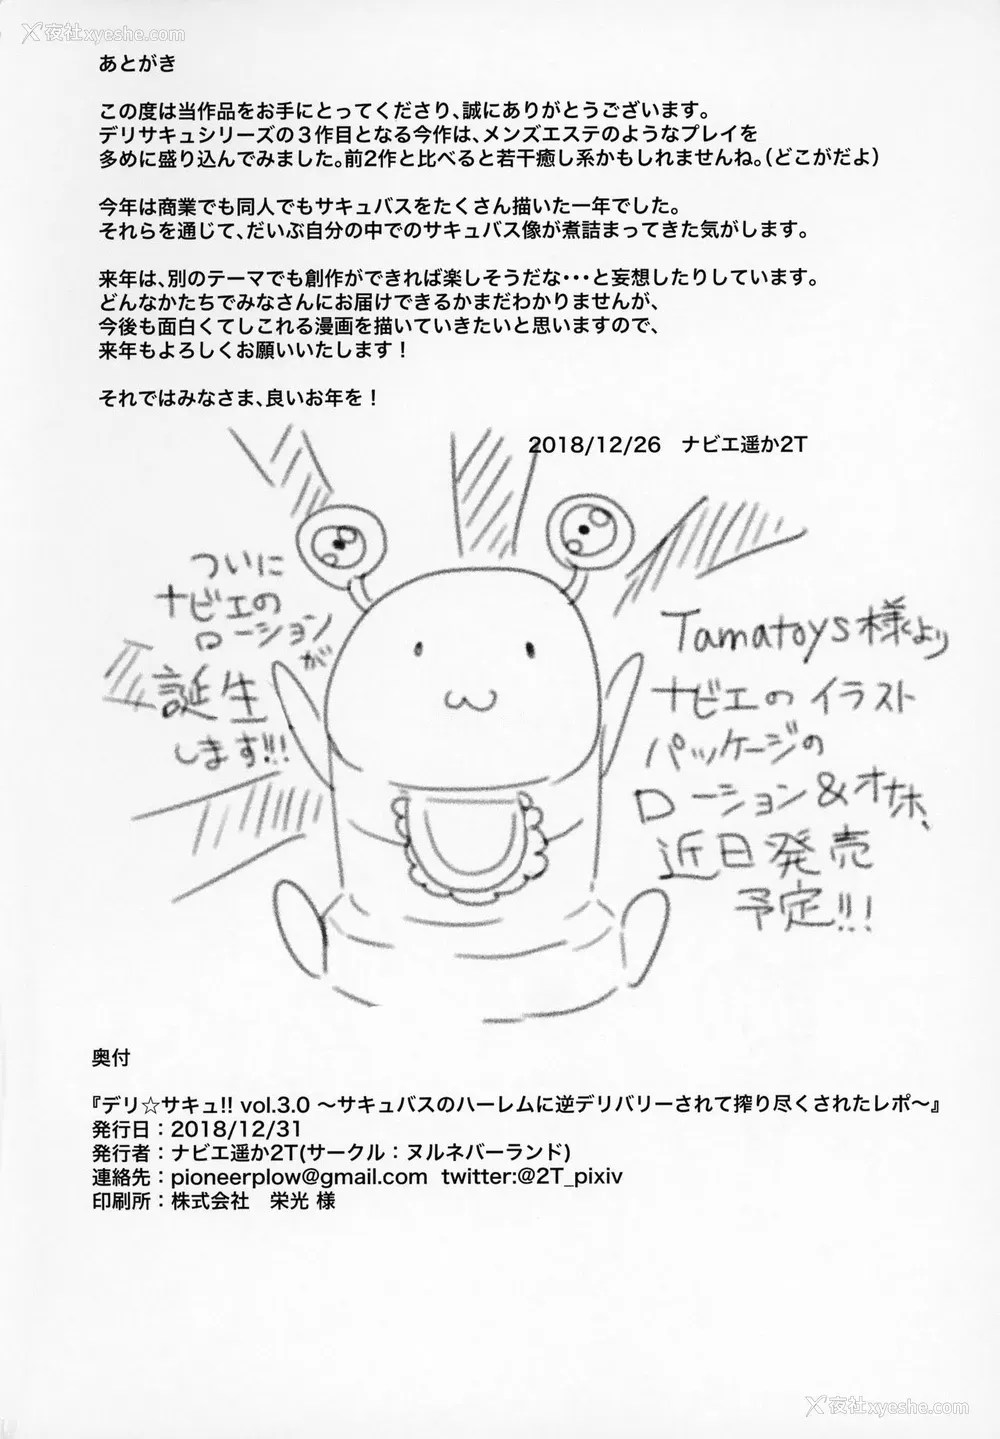 夜社xyeshe.com
あとがき
この度は当作品をお手にとってくださり、誠にありがとうございます。
デリサキュシリーズの３作目となる今作は、メンズエステのようなプレイを
多めに盛り込んでみました。前2作と比べると若干癒し系かもしれませんね。(どこがだよ)
今年は商業でも同人でもサキュバスをたくさん描いた一年でした。
それらを通じて、だいぶ自分の中でのサキュバス像が煮詰まってきた気がします。
来年は、別のテーマでも創作ができれば楽しそうだな・・・と妄想したりしています。
どんなかたちでみなさんにお届けできるかまだわかりませんが、
今後も面白くてしこれる漫画を描いていきたいと思いますので、
来年もよろしくお願いいたします！
それではみなさま、良いお年を！
2018/12/26　ナビエ遥か2T
ついに
ナビエの
ローションが
誕生
します!!!
Tamatoys様より
ナビエの イラスト
パッケージの
ローション&オナホ、
近日発売
予定!!!
奥付
『デリ☆サキュ!! vol.3.0 〜サキュバスのハーレムに逆デリバリーされて搾り尽くされたレポ〜』
発行日：2018/12/31
発行者：ナビエ遥か2T(サークル：ヌルネバーランド)
連絡先：pioneerplow@gmail.com twitter:@2T_pixiv
印刷所：株式会社　栄光 様
夜社xyeshe.com